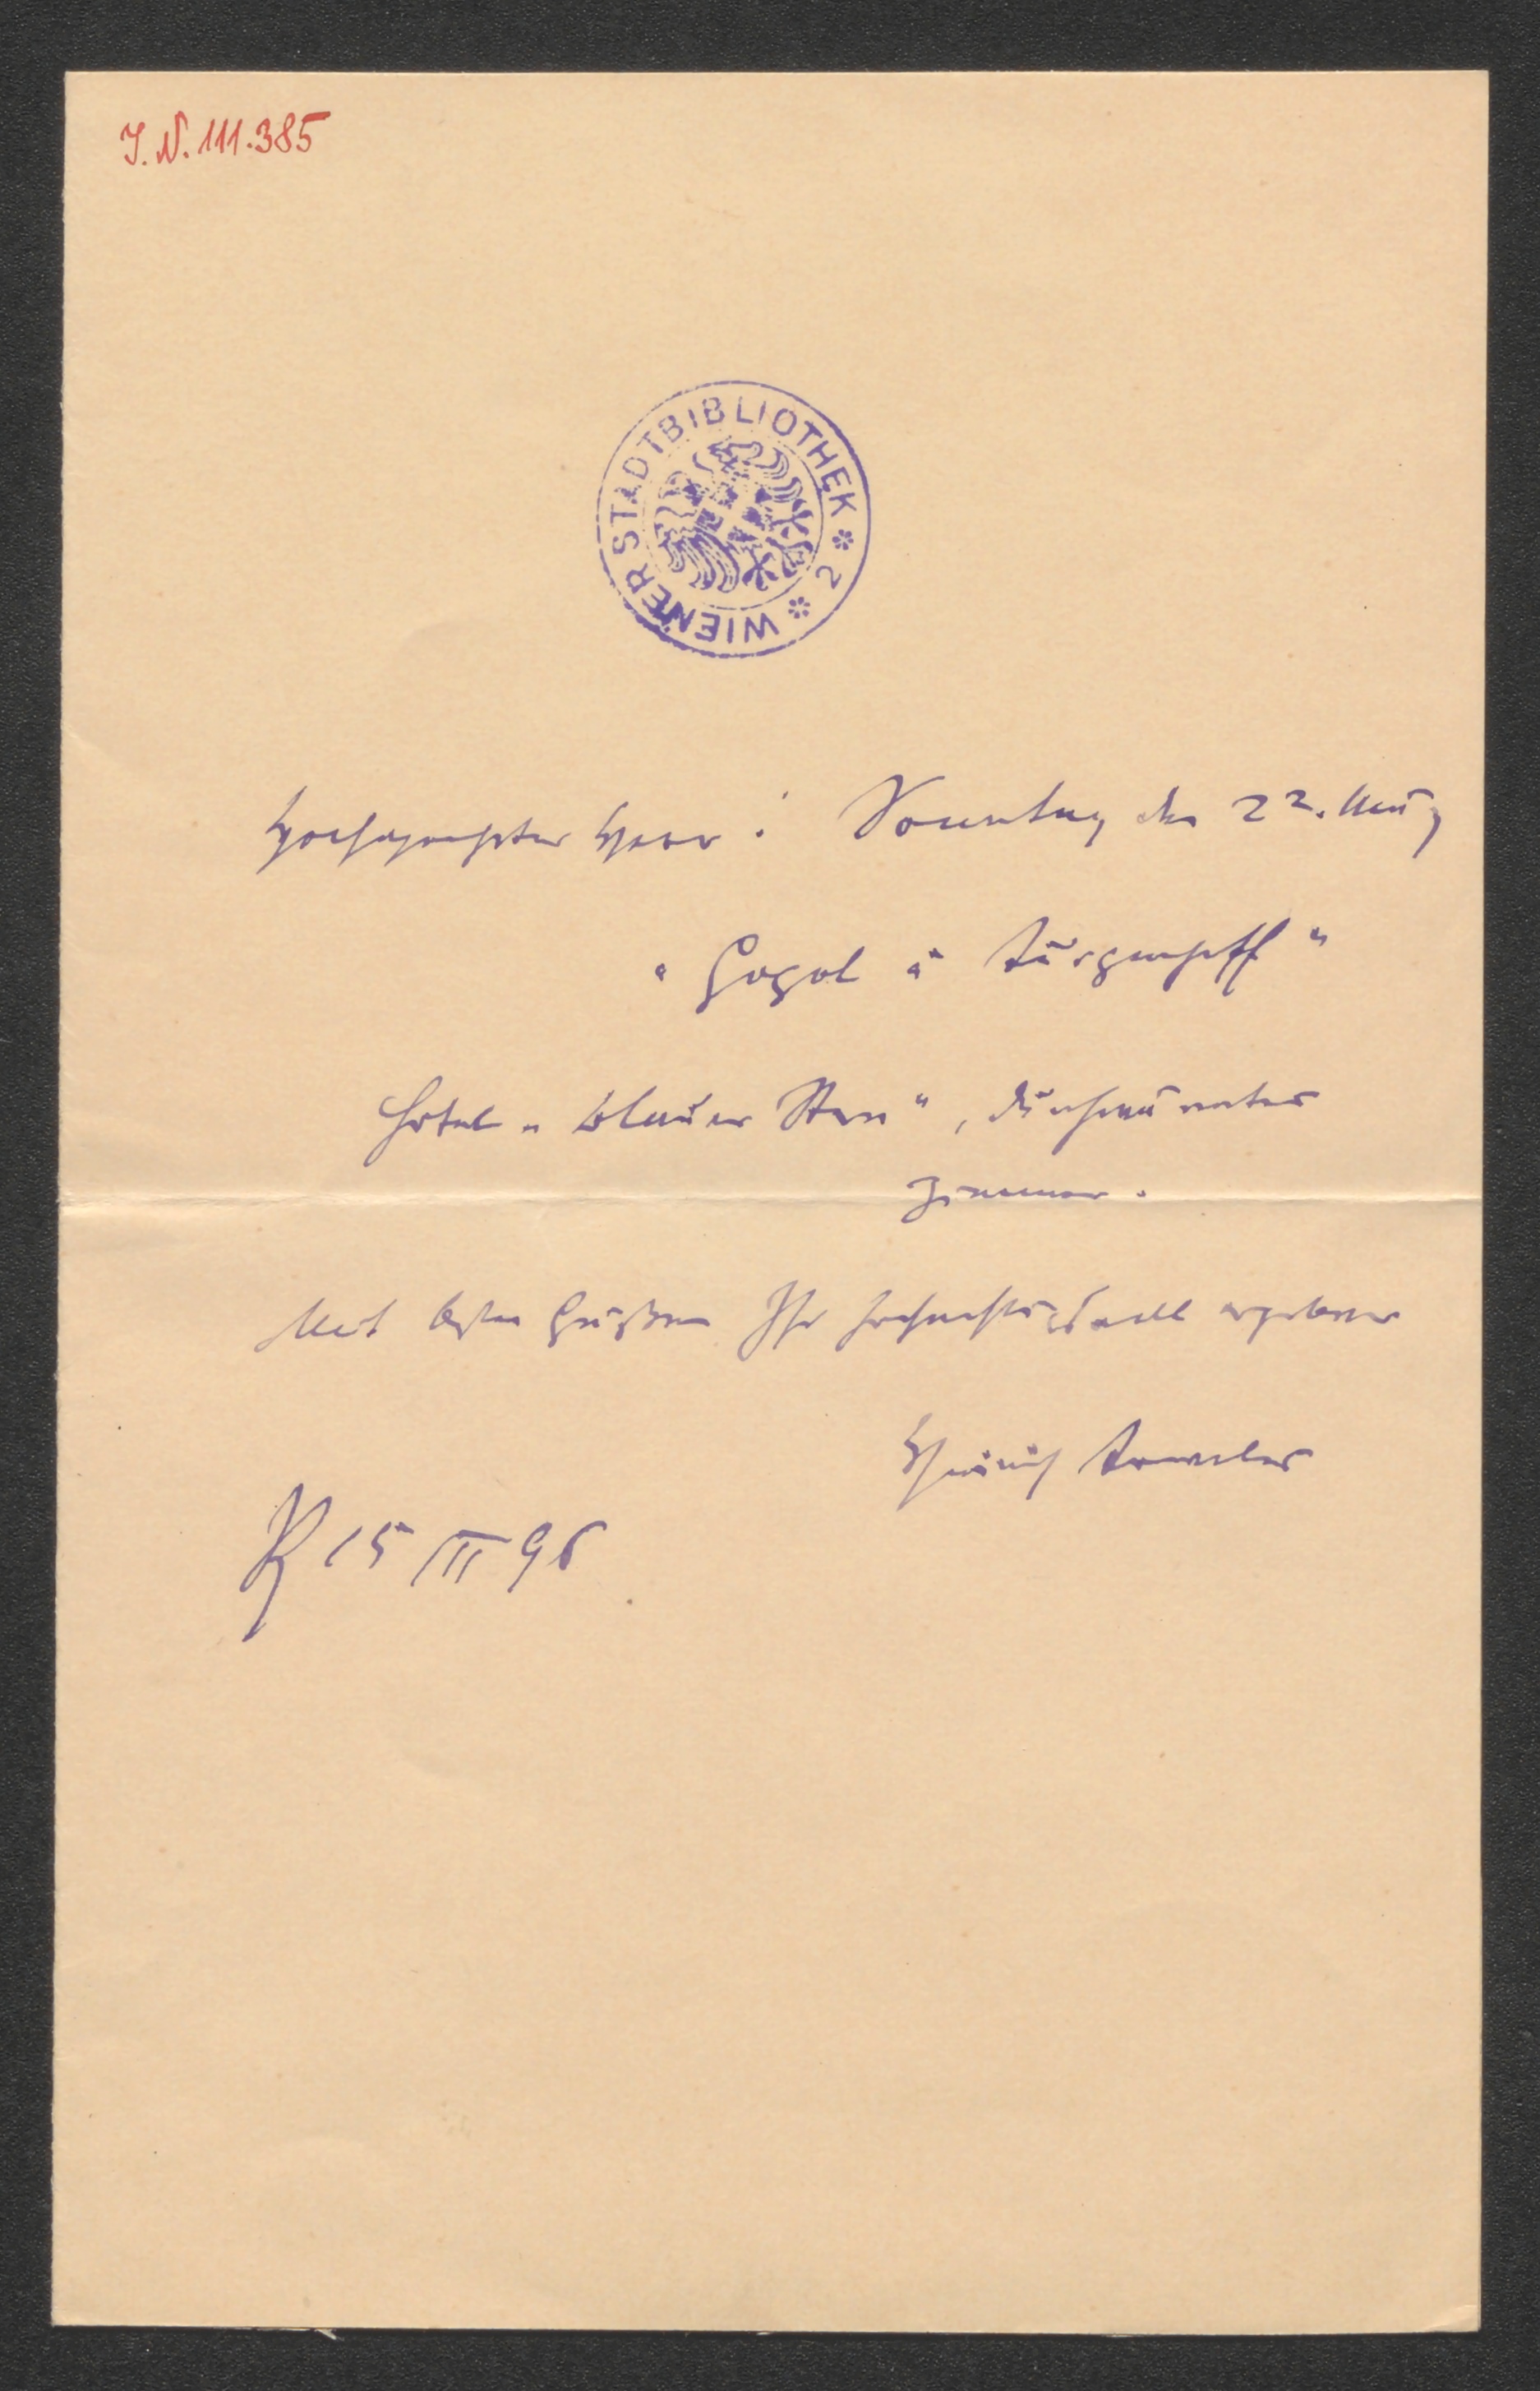 J. N. 111.385
WIENER STADTBIBLIOTHEK * 2 *
Hochgeehrter Herr! Sonntag den 22. März
"Gogol u Turgenjeff"
Hotel "Blauer Stern",
Zimmer.
Mit besten Grüßen Ihr hochachtungsvoll ergebener
Heinrich Teweles
P 15 III 96